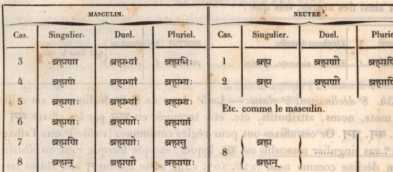 MASCULIN. NEUTRE
Cas. Singulier. Duel. Pluriel. Cas. Singulier. Duel. Plurie
3 ब्रह्मणा ब्रह्मभ्यां ब्रह्मभिः 1 ब्रह्म ब्रह्मणी
4 ब्रह्मणे ब्रह्मभ्यां ब्रह्मभ्यः 2 ब्रह्म ब्रह्मणी
5 ब्रह्मणः ब्रह्मभ्यां ब्रह्मभ्यः Etc. comme le masculin.
6 ब्रह्मणः ब्रह्मणोः ब्रह्मणां
7 ब्रह्मणि ब्रह्मणोः ब्रह्मसु 8 ब्रह्म
8 ब्रह्मन् ब्रह्माणौ ब्रह्माणः ब्रह्मन्